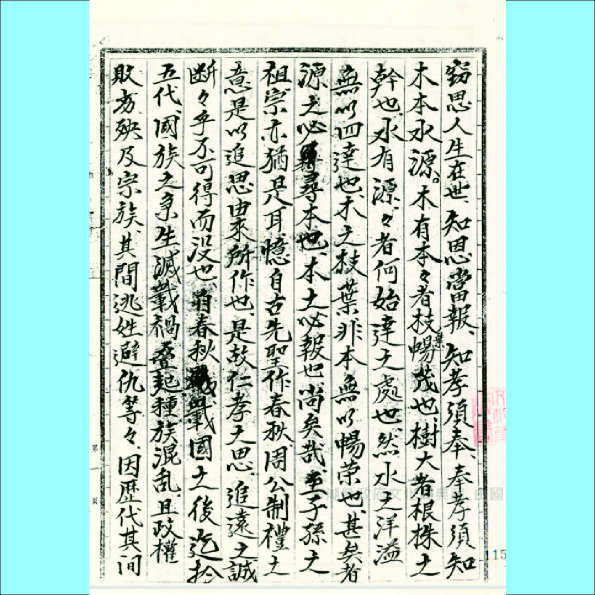 竊思人生在世、知思當報、知孝須奉、奉孝須知
木本水源。木有本々者枝葉暢茂也、樹大者根株之
幹也、水有源々者何始達之處也、然水之洋溢
無以四達也、木之枝葉非本無以暢榮也、甚矣者
源之必尋本也、本之必報也尚矣哉、子孫之
祖宗亦猶是耳、憶自古先聖作春秋、周公制禮之
意是以追思由來所作也、是故仁孝之思、追遠之誠
断々乎不可得而没也、自春秋戰國之後迄於
五代、國族之系生滅載禍疊起種族混乱、且政權
敗亥殃及宗族、其間逃姓避仇等々、因歷代其间
115